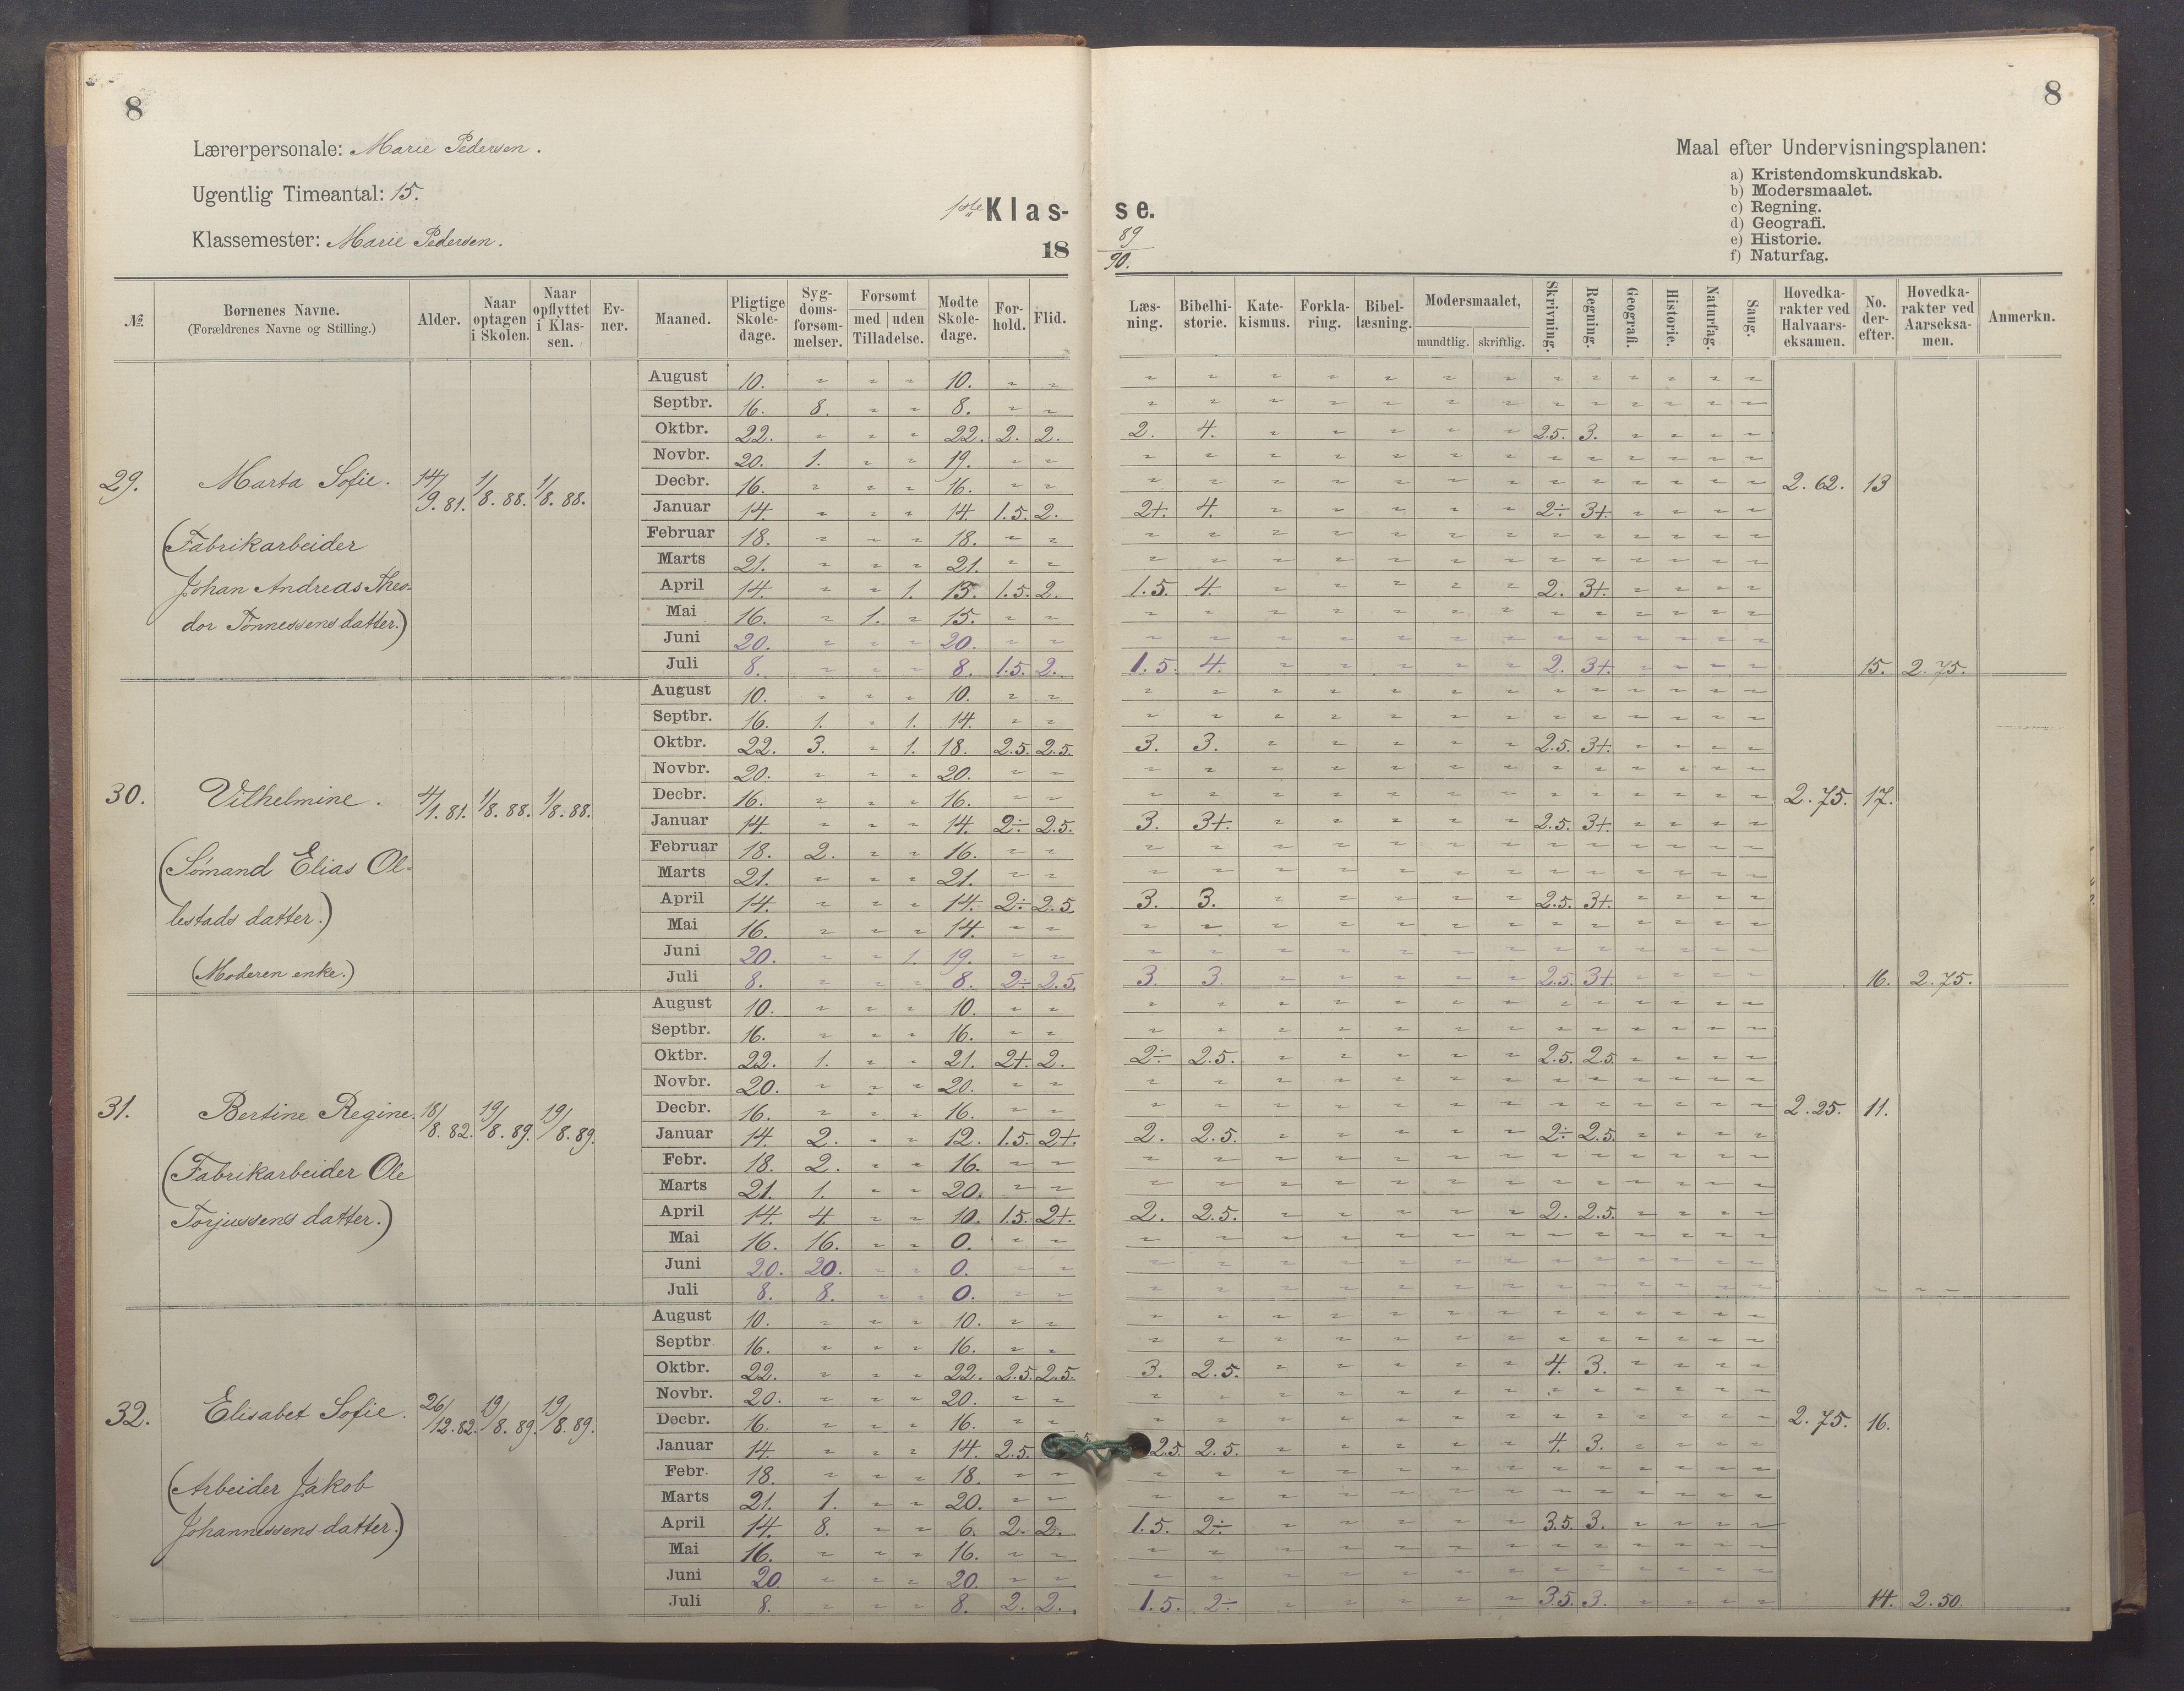 8
8
Lærerpersonale: Marie Pedersen.
Ugentlig Timeantal: 15.
Klassemester: Marie Pedersen.
1ste Klas-se.
18 89/90.
Maal efter Undervisningsplanen:
a) Kristendomskundskab.
b) Modersmaalet.
c) Regning.
d) Geografi.
e) Historie.
f) Naturfag.
№ | Børnenes Navne. (Forældrenes Navne og Stilling.) | Alder. | Naar optagen i Skolen. | Naar opflyttet i Klassen. | Ev-ner. | Maaned. | Pligtige Skole-dage. | Syg-doms-forsøm-melser. | Forsømt med uden Tilladelse. | Mødte Skole-dage. | For-hold. | Flid. | Læs-ning. | Bibelhi-storie. | Kate-kismus. | Forkla-ring. | Bibel-læsning. | Modersmaalet, mundtlig. skriftlig. | Skrivning. | Regning. | Geografi. | Historie. | Naturfag. | Sang. | Hovedka-rakter ved Halvaars-eksamen. | No. der-efter. | Hovedka-rakter ved Aarseksa-men. | Anmerkn.
29. Marta Sofie. 14/9.81. 1/8.88. 1/8.88. 2.62. 13
(Fabrikarbeider
Johan Andreas Theo-
dor Tønnessens datter.)
August 10. " " " 10. " "
Septbr. 16. 8. " " 8. " "
Oktbr. 22. " " " 22. 2. 2. 2. 4. 2.5. 3.
Novbr. 20. 1. " " 19. " "
Decbr. 16. " " " 16. " "
Januar 14. " " " 14. 1.5. 2. 2+. 4. 2÷ 3+.
Februar 18. " " " 18. " "
Marts 21. " " " 21. " "
April 14. " " 1. 13. 1.5. 2. 1.5. 4. 2. 3+.
Mai 16. " 1. " 15. " "
Juni 20. " " " 20. " "
Juli 8. " " " 8. 1.5. 2. 1.5. 4. 2. 3+. 15. 2.75.
30. Vilhelmine. 4/1.81. 1/8.88. 1/8.88. 2.75. 17.
(Sømand Elias Ol-
lestads datter.)
(Moderen enke.)
August 10. " " " 10. " "
Septbr. 16. 1. " 1. 14. " "
Oktbr. 22. 3. " 1. 18. 2.5. 2.5. 3. 3. 2.5. 3+.
Novbr. 20. " " " 20. " "
Decbr. 16. " " " 16. " "
Januar 14. " " " 14. 2÷ 2.5. 3. 3+. 2.5. 3+.
Februar 18. 2. " " 16. " "
Marts 21. " " " 21. " "
April 14. " " " 14. 2÷ 2.5. 3. 3. 2.5. 3+.
Mai 16. " " " 14. " "
Juni 20. " " 1. 19. " "
Juli 8. " " " 8. 2÷ 2.5. 3. 3. 2.5. 3+. 16. 2.75.
31. Bertine Regine. 18/8.82. 19/8.89. 19/8.89. 2.25. 11.
(Fabrikarbeider Ole
Torjussens datter.)
August 10. " " " 10. " "
Septbr. 16. " " " 16. " "
Oktbr. 22. 1. " " 21. 2+. 2. 2÷ 2.5. 2.5. 2.5.
Novbr. 20. " " " 20. " "
Decbr. 16. " " " 16. " "
Januar 14. 2. " " 12. 1.5. 2+. 2. 2.5. 2÷ 2.5.
Febr. 18. 2. " " 16. " "
Marts 21. 1. " " 20. " "
April 14. 4. " " 10. 1.5. 2+. 2. 2.5. 2. 2.5.
Mai 16. 16. " " 0. " "
Juni 20. 20. " " 0. " "
Juli 8. 8. " " 0. " "
32. Elisabet Sofie. 26/12.82. 19/8.89. 19/8.89. 2.75. 16.
(Arbeider Jakob
Johannessens datter.)
August 10. " " " 10. " "
Septbr 16. " " " 16. " "
Oktbr. 22. " " " 22. 2.5. 2.5. 3. 2.5. 4. 3.
Novbr. 20. " " " 20. " "
Decbr. 16. " " " 16. " "
Januar 14. " " " 14. 2.5. 2.5. 2.5. 4. 3.
Febr. 18. " " " 18. " "
Marts 21. 1. " " 20. " "
April 14. 8. " " 6. 2. 2. 1.5. 2÷ 3.5. 3.
Mai 16. " " " 16. " "
Juni 20 " " " 20. " "
Juli 8. " " " 8. 2. 2. 1.5. 2÷ 3.5. 3. 14. 2.50.